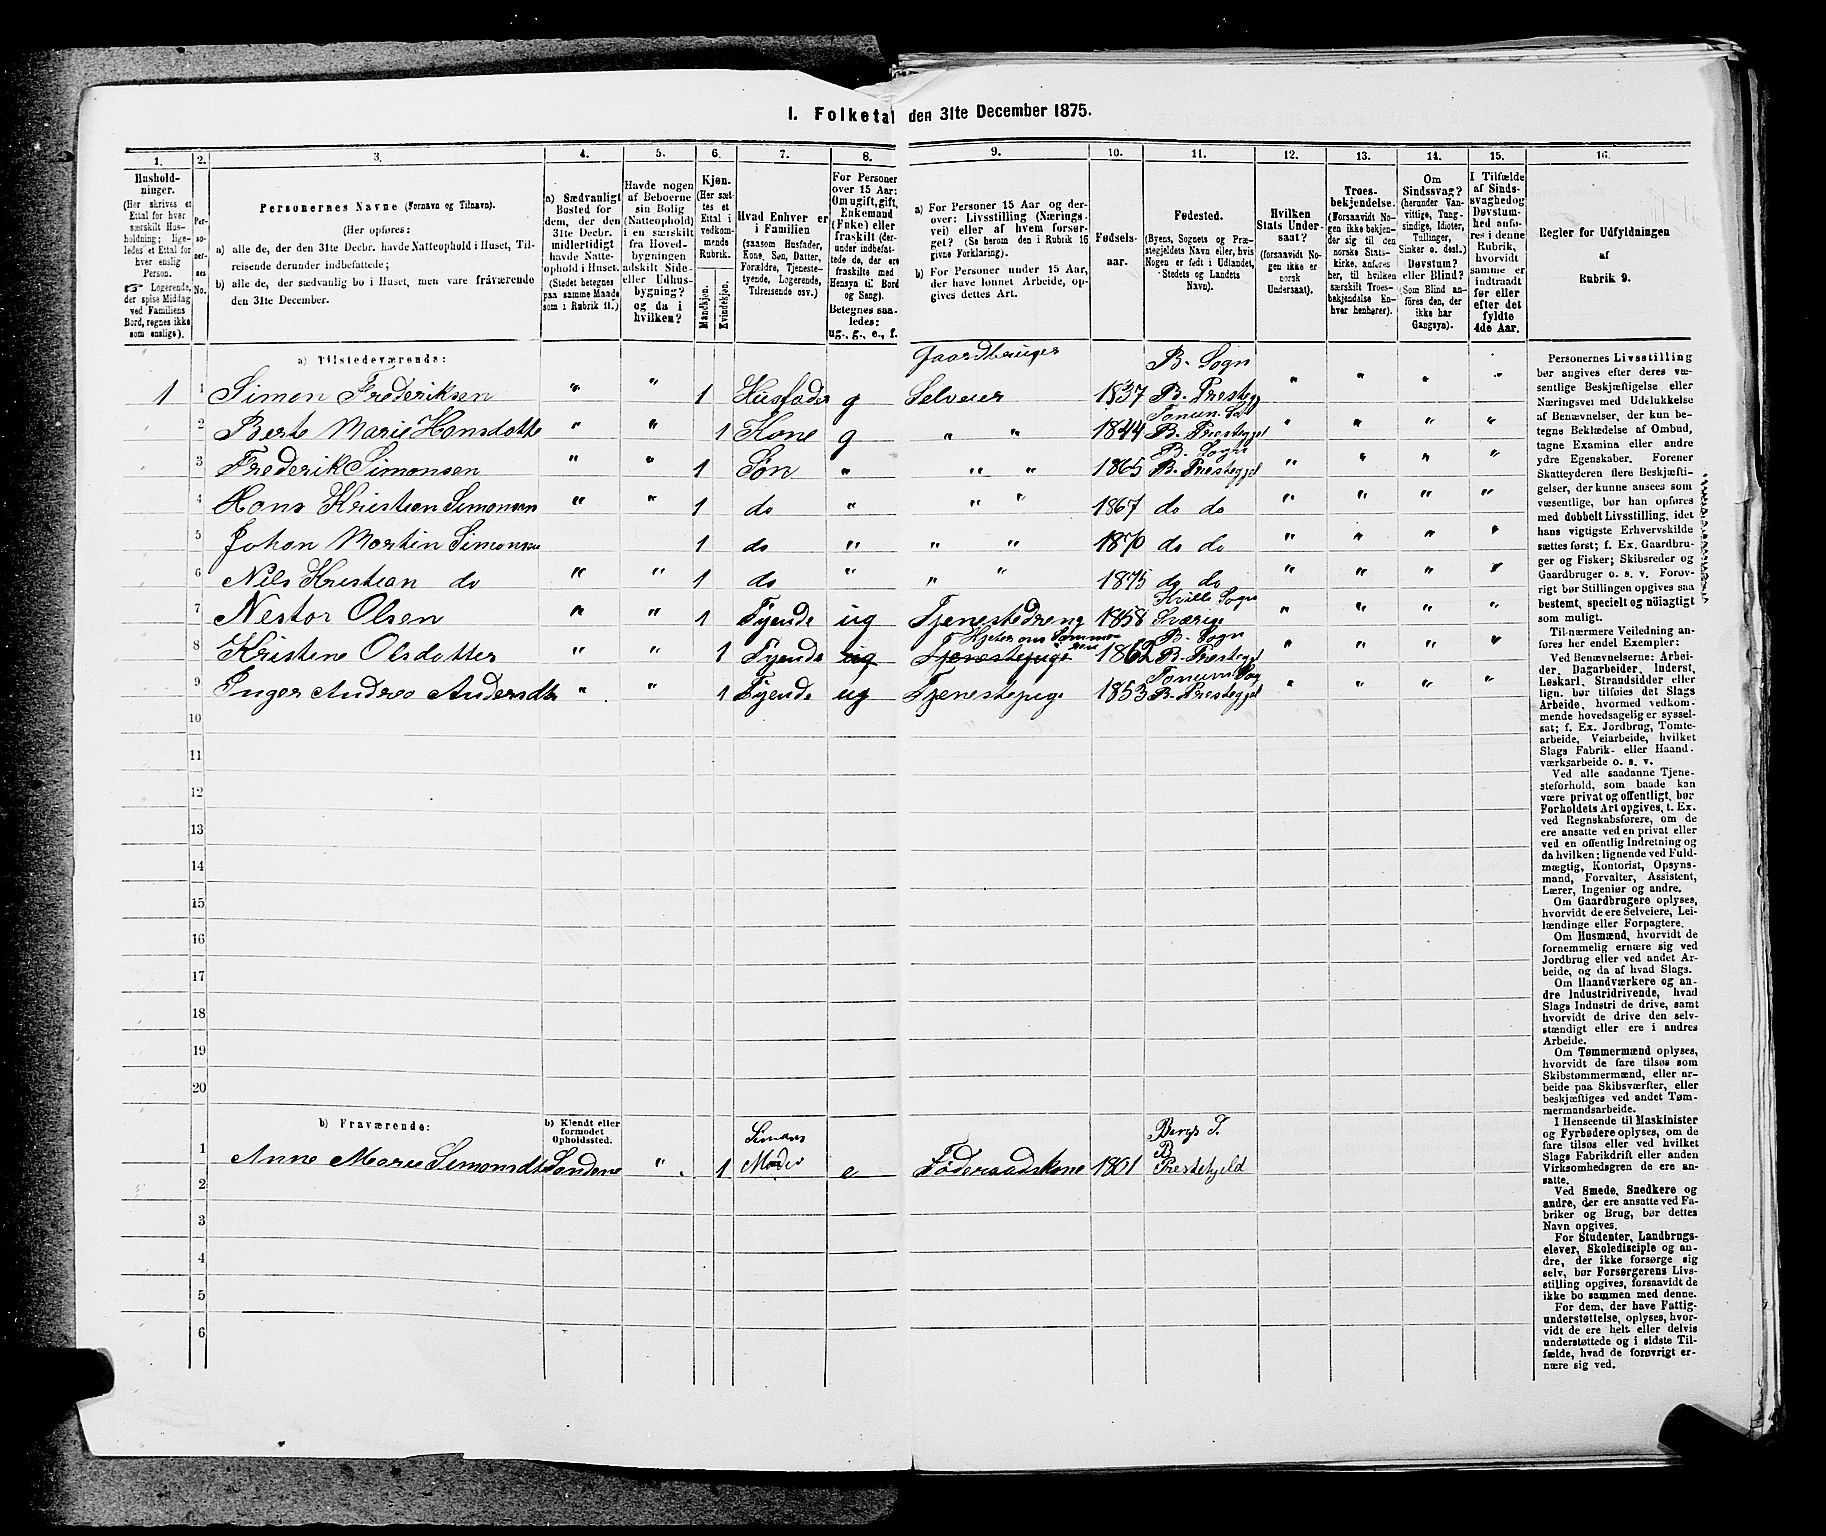 I. Folketal den 31te December 1875.
1. 2. 3. 4. 5. 6. 7. 8. 9. 10. 11. 12. 13. 14. 15. 16.
Husholdninger.
(Her skrives et
Ettal for hver
særskilt Husholdning;
ligeledes et Ettal for
hver enslig
Person.
☞ Logerende,
der spise Middag
ved Familiens
Bord, regnes ikke
som enslige).
Personernes No.
Personernes Navne (Fornavn og Tilnavn).
(Her opføres:
a) alle de, der den 31te Decbr. havde Natteophold i Huset, Tilreisende derunder indbefattede;
b) alle de, der sædvanlig bo i Huset, men vare fraværende
den 31te December.
a) Sædvanligt
Bosted for
dem, der den
31te Decbr.
midlertidigt
havde Natteophold i Huset.
(Stedet betegnes
paa samme Maade
som i Rubrik 11.)
Havde nogen
af Beboerne
sin Bolig
(Natteophold)
i en særskilt
fra Hovedbygningen
adskilt Side- eller Udhusbygning?
og da i
hvilken?
Kjøn.
(Her sættes et
Ettal i
vedkommende
Rubrik.
Mandkjøn.
Kvindekjøn.
Hvad Enhver er
i Familien
(saasom Husfader,
Kone, Søn, Datter,
Forældre, Tjenestetyende, Logerende,
Tilreisende osv.)
For Personer
over 15 Aar:
Om ugift, gift,
Enkemand
(Enke) eller
fraskilt (derunder indbefattede de, der ere
fraskilte med
Hensyn til Bord
og Seng).
Betegnes saaledes:
ug., g., e., f.
a) For Personer 15 Aar og derover: Livsstilling (Næringsvei) eller af hvem forsørget? (Se herom den i Rubrik 16
givne Forklaring).
b) For Personer under 15 Aar,
der have lønnet Arbeide, opgives dettes Art.
Fødselsaar.
Fødested.
(Byens, Sognets og Præstegjeldets Navn eller, hvis
Nogen er født i Udlandet,
Stedets og Landets
Navn).
Hvilken
Stats Undersaat?
(forsaavidt Nogen ikke er
norsk
Undersaat).
Troesbekjendelse.
(Forsaavidt Nogen ikke bekjender sig til den
norske Statskirke, anføres
her, til hvilken
særskilt Troesbekjendelse Enhver henhører).
Om
Sindssvag?
(herunder Vanvittige, Tungsindige, Idioter,
Tullinger,
Sinker o. desl.).
Døvstum?
eller Blind?
(Som Blind anføres den, der
ikke har
Gangsyn).
I Tilfælde
af Sindssvaghed og
Døvstumhed anføres i denne
Rubrik,
hvorvidt
samme er
indtraadt
før eller
efter det
fyldte
4de Aar.
Regler for Udfyldningen
af
Rubrik 9.
a) Tilstedeværende: Gaardbruger B. Sogn
1 1 Simon Frederiksen " " 1 Husfader g Selveier 1837 B. Prestegj " " " "
Tomum So
2 Berte Marie Hansdatte " " 1 Kone g " " 1844 B. Prestegjel " " " "
B. Sogn
3 Frederik Simonsen " " 1 Søn " " " 1865 B. Prestegjel " " " "
4 Hans Kristian Simonsen " " 1 do " " " 1867 do do " " " "
5 Johan Martin Simonsen 1 do " " " 1870 do do " " " "
6 Nils Kristian do " " 1 do " " " 1875 do do " " " "
Kville Sogn
7 Nestor Olsen " " 1 Tyende ug Tjenestedreng 1858 Sverige " " " "
Hjeter om Sommeren B. Sogn
8 Kristine Olsdatter " " 1 Tyende ug Tjenestepige 1862 B. Prestegjel " " " "
Tomum Sog
9 Inger Andrea Andersdtr " " 1 Tyende ug Tjenestepige 1853 B. Prestegjel " " " "
10
11
12
13
14
15
16
17
18
19
20
b) Fraværende: b) Kjendt eller
formodet
Opholdssted.
Simons Bergs S.
B
1 Anne Marie Simonsdtr Sandene " 1 Moder e Føderaadskone 1801 Prestegjeld
2
3
4
5
6
Personernes Livsstilling
bør angives efter deres væsentlige Beskjæftigelse eller
Næringsvei med Udelukkelse
af Benævnelser, der kun betegne Beklædelse af Ombud,
tagne Examina eller andre
ydre Egenskaber. Forener
Skatteyderen flere Beskjæftigelser, der kunne ansees som
væsentlige, bør han opføres
med dobbelt Livsstilling, idet
hans vigtigste Erhvervskilde
sættes først; f. Ex. Gaardbruger og Fisker; Skibsreder og
Gaardbruger o. s. v. Forøvrigt bør Stillingen opgives saa
bestemt, specielt og nöiagtigt
som muligt.
Til nærmere Veiledning anføres her endel Exempler:
Ved Benævnelserne: Arbeider, Dagarbeider, Inderst,
Løskarl, Strandsidder eller
lign. bør tilføies det Slags
Arbeide, hvormed vedkommende hovedsagelig er sysselsat; f. Ex. Jordbrug, Tomtearbeide, Veiarbeide, hvilket
Slags Fabrik- eller Haandværksarbeide o. s. v.
Ved alle saadanne Tjenesteforhold, som baade kan
være privat og offentligt, bør
Forholdets Art opgives, t. Ex.
ved Regnskabsførere, om de
ere ansatte ved en privat eller
ved en offentlig Indretning og
da hvilken; lignende ved Fuldmægtig, Kontorist, Opsynsmand, Forvalter, Assistent,
Lærer, Ingeniør og andre.
Om Gaardbrugere oplyses,
hvorvidt de ere Selveiere, Leilændinge eller Forpagtere.
Om Husmænd, hvorvidt de
fornemmelig ernære sig ved
Jordbrug eller ved andet Arbeide, og da af hvad Slags.
Om Haandværkere og andre Industridrivende, hvad
Slags Industri de drive, samt
hvorvidt de drive den selvstændigt eller ere i andres
Arbeide.
Om Tømmermænd oplyses,
hvorvidt de fare tilsøs som
Skibstømmermænd, eller arbeide paa Skibsværfter, eller
beskjæftiges ved andet Tømmermandsarbeide.
I Henseende til Maskinister
og Fyrbødere oplyses, om de
fare tilsøs eller ved hvilket
Slags Fabrikdrift eller anden
Virksomhedsgren de ere ansatte.
Ved Smede, Snedkere og
andre, der ere ansatte ved Fabriker og Brug, bør dettes
Navn opgives.
For Studenter, Landbrugselever, Skoledisciple og andre, der ikke forsørge sig
selv, bør Forsørgerens Livsstilling opgives, forsaavidt de
ikke bo sammen med denne.
For dem, der have Fattigunderstøttelse, oplyses, hvorvidt de ere helt eller delvis
understøttede og i sidste Tilfælde, hvad de forøvrigt ernære sig ved.